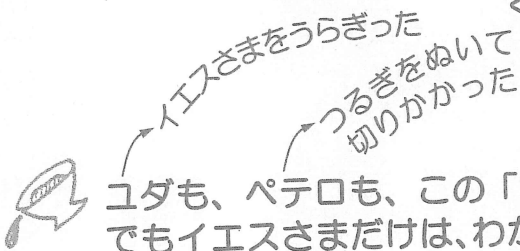 イエスさまをうらぎった
つるぎをぬいて
切りかかった
ユダも、ペテロも、この「
でもイエスさまだけは、わか